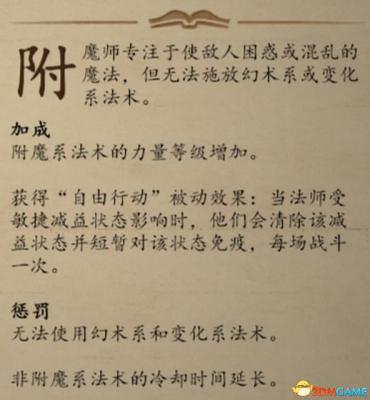 附魔师专注于使敌人困惑或混乱的
魔法，但无法施放幻术系或变化
系法术。
加成
附魔系法术的力量等级增加。
获得“自由行动”被动效果：当法师受
敏捷减益状态影响时，他们会清除该减
益状态并短暂对该状态免疫，每场战斗
一次。
惩罚
无法使用幻术系和变化系法术。
非附魔系法术的冷却时间延长。
3DMGAME